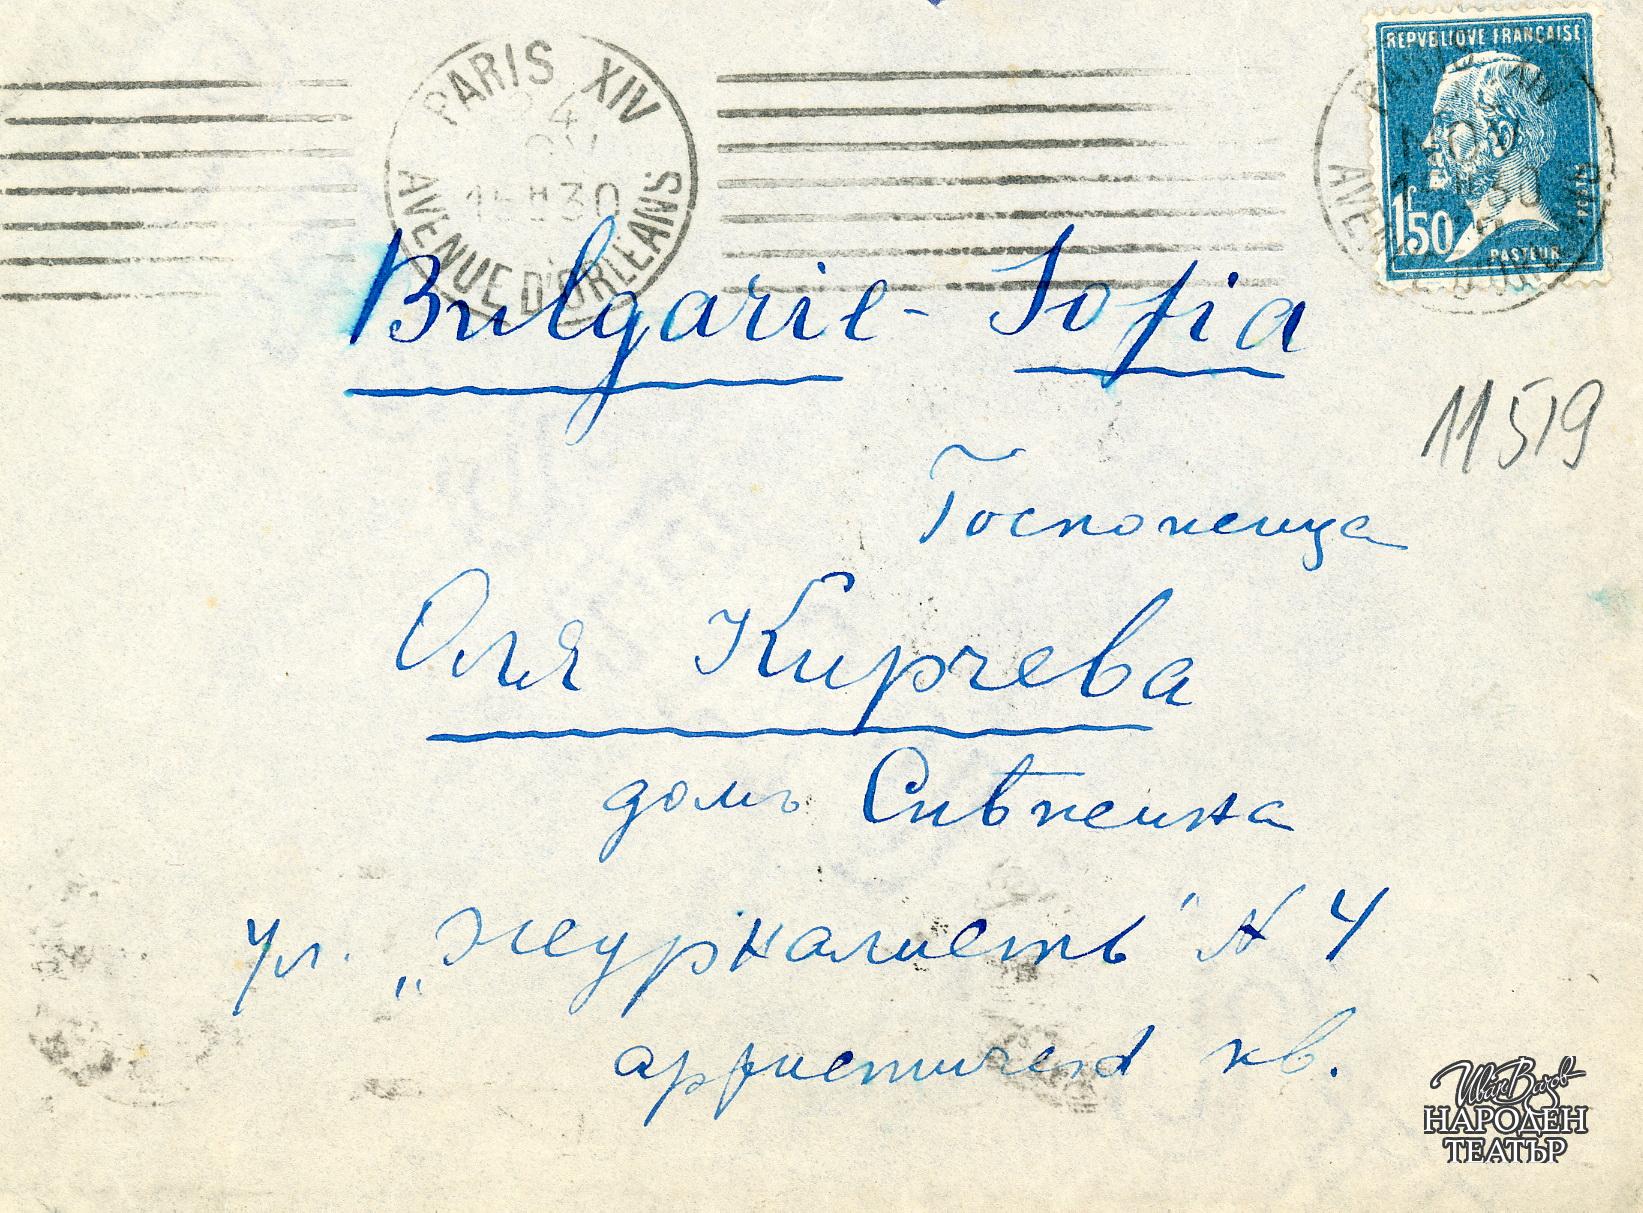 PARIS XIV
4
15H30
AVENUE D'ORLEANS
REPVBLIQVE FRANÇAISE
NOV
1F50
PASTEUR
Bulgarie - Sofia
11519
Госпожица
Оля Кирчева
домъ
ул. „Журналистъ" № 4
артистичен кв.
Иван Вазов
НАРОДЕН
ТЕАТЪР